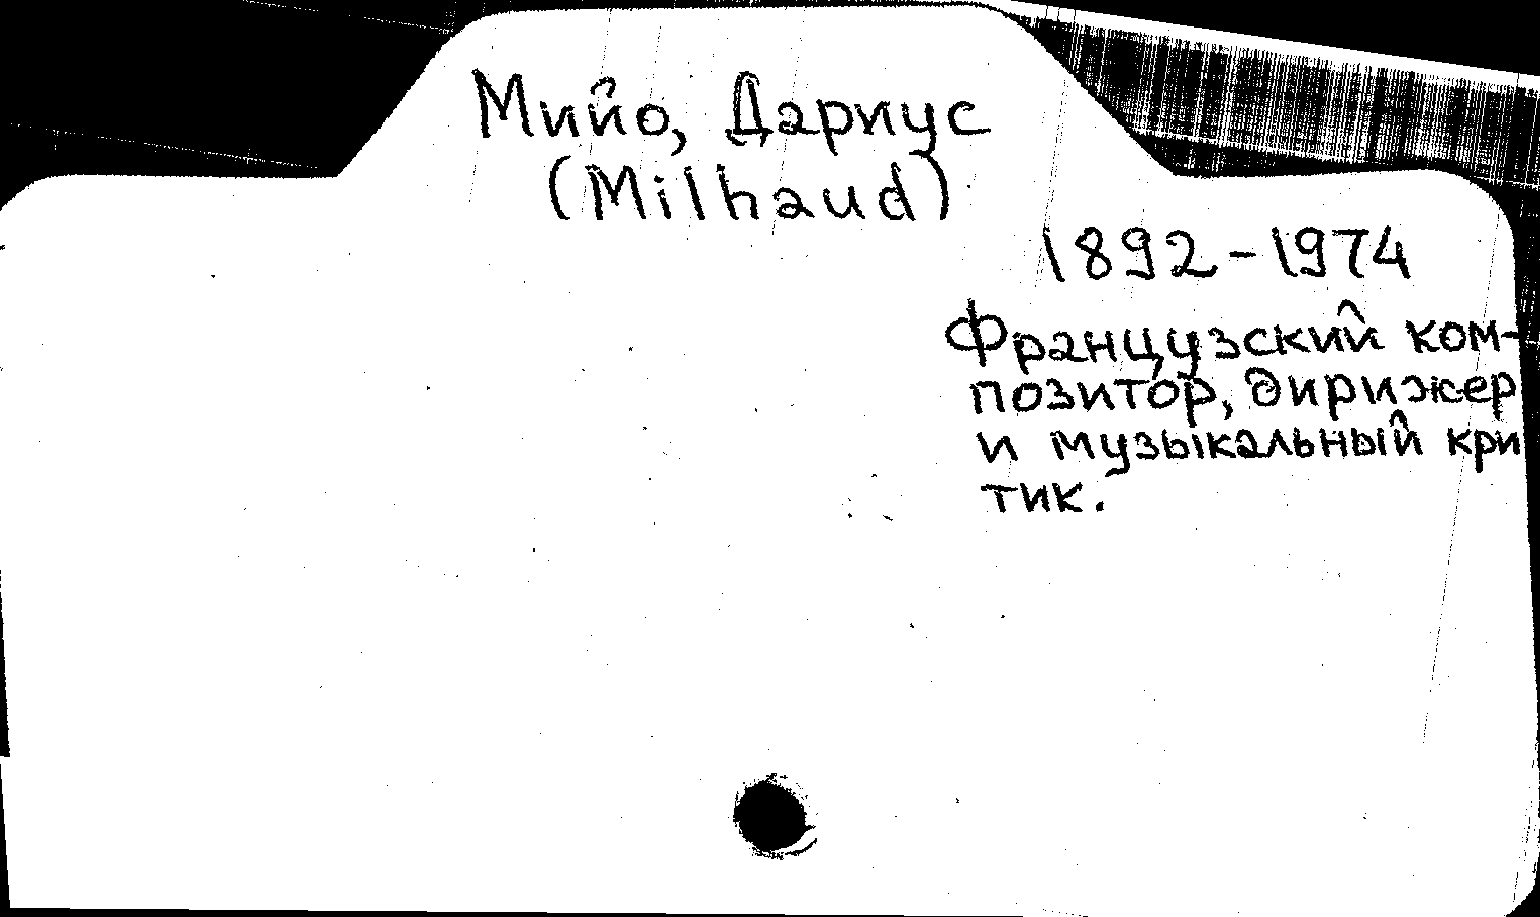 Мийо, Дариус
(Milhaud)
1892-1974
Французский ком-
позитор, дирижер
и музыкальный кри
тик.